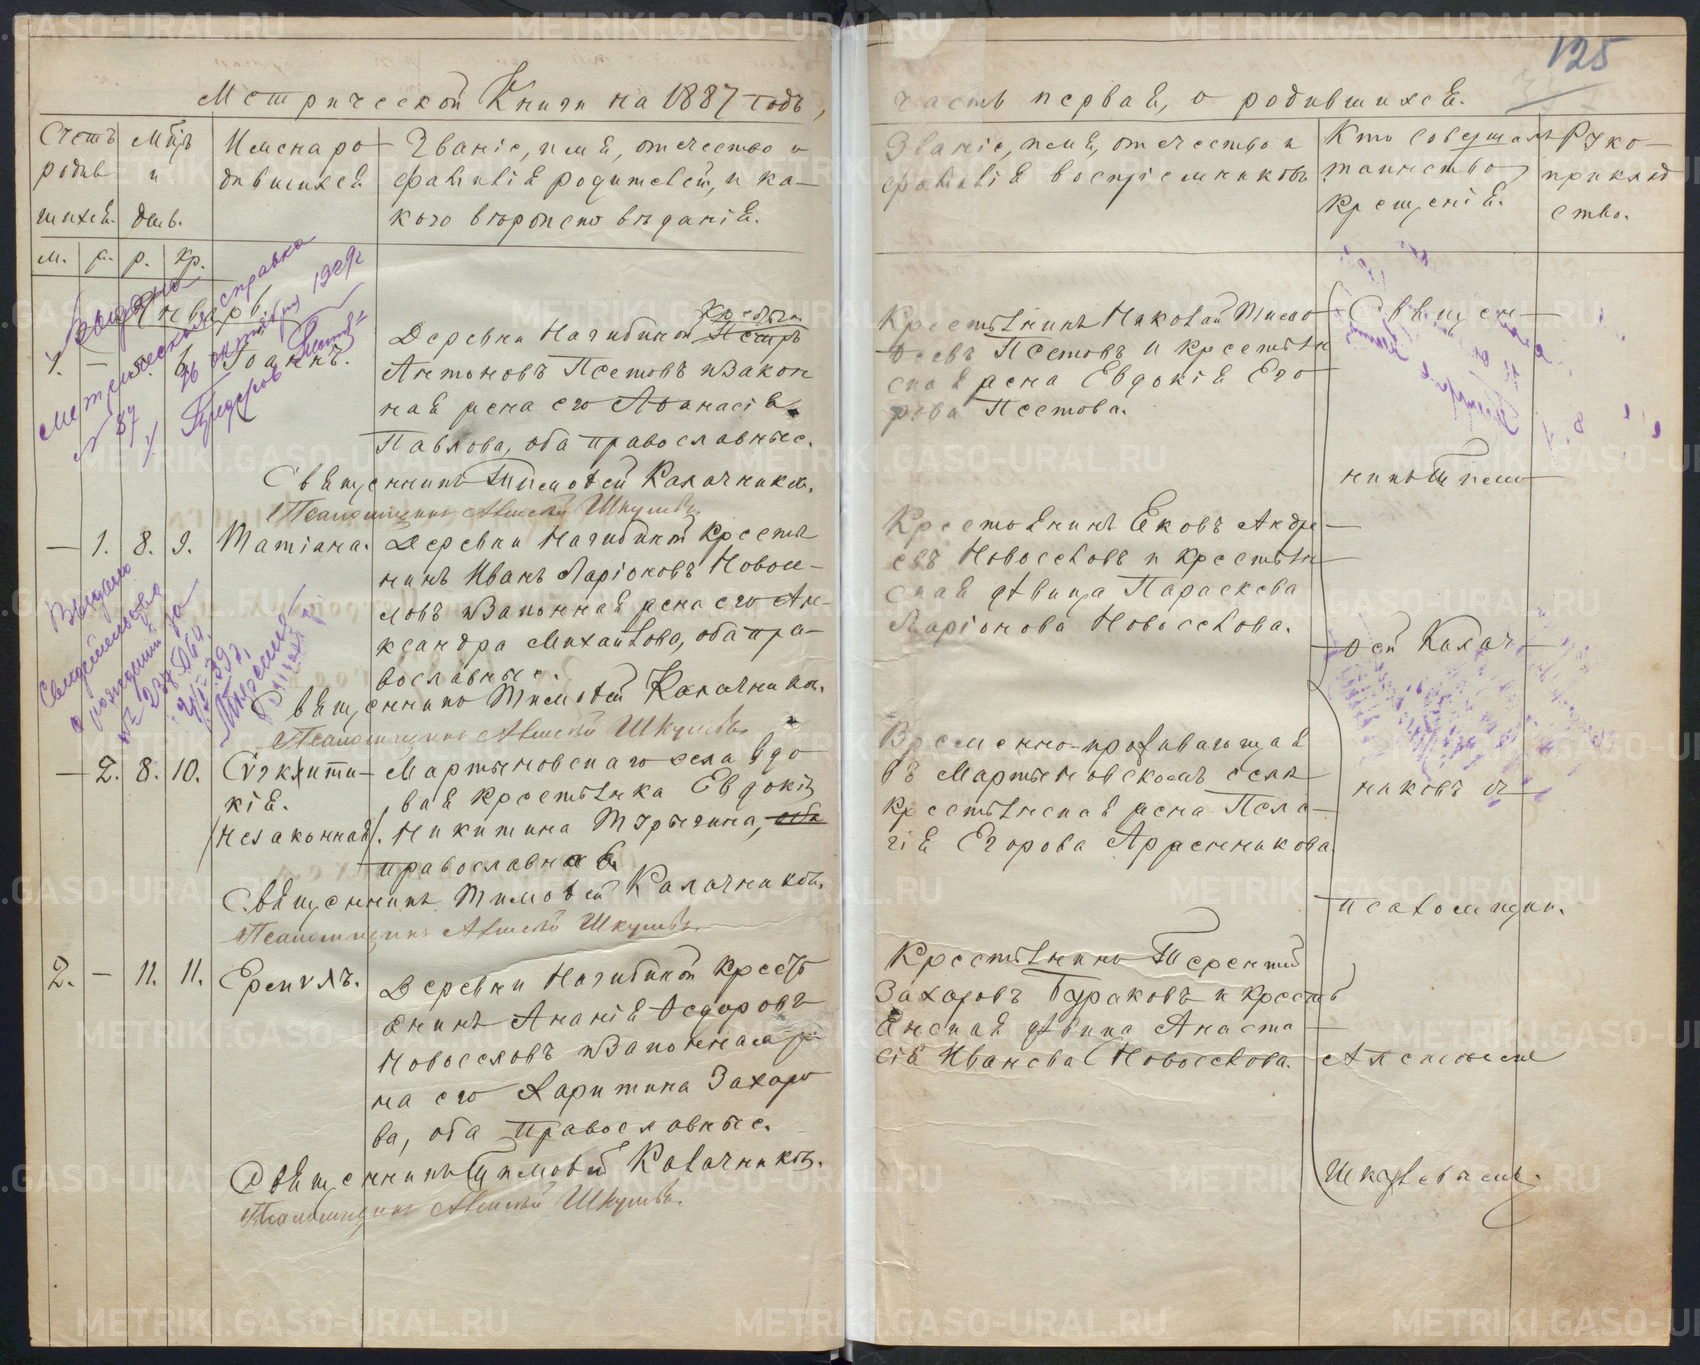 125
Метрической Книги на 1887 годъ,
часть первая, о родившихся.
Счетъ родившихся.
Мѣсяцъ и день.
Имена родившихся
Званіе, имя, отчество и
фамилія родителей, и ка-
кого вѣроисповѣданія.
Званіе, имя, отчество и
фамилія воспріемниковъ
Кто совершалъ
таинство
крещенія.
Руко-
приклад
ство.
м. ж. р. кр.
Январь
выдана
метрическая справка
26 октября 1929г
№ 87
1. — 6. Іоаннъ.
Деревни Нагибиной Крестьян
Петръ
Антоновъ Пѣтовъ и закон
ная жена его Аѳанасія
Павлова, оба православные.
Священникъ Тимоѳей Калачниковъ.
Псаломщикъ Алексѣй Шкулевъ.
Крестьянинъ Николай Тимо
ѳеевъ Пѣтовъ и крестьян
ская жена Евдокія Его
рова Пѣтова.
— 1. 8. 9. Татіана.
Деревни Нагибиной Крестья
нинъ Иванъ Ларіоновъ Новосе-
ловъ и законная жена его Але-
ксандра Михайлова, оба пра-
вославные.
Священникъ Тимоѳей Калачниковъ.
Псаломщикъ Алексѣй Шкулевъ.
Крестьянинъ Яковъ Андре-
евъ Новоселовъ и крестьян
ская дѣвица Параскева
Ларіонова Новоселова.
Выдано
свидетельство
о рождении за
— 2. 8. 10. Сѵнклити-
кія.
(незаконная).
Мартыновскаго села вдо
вая крестьянка Евдокія
Никитина Тарыгина, оба
православная.
Священникъ Тимоѳей Калачниковъ.
Псаломщикъ Алексѣй Шкулевъ.
Временно-проживающая
въ Мартыновскомъ селѣ
крестьянская жена Пела-
гія Егорова
2. — 11. 11. Ермилъ.
Деревни Нагибиной Кресть
янинъ Ананія Ѳедоровъ
Новоселовъ и законная же
на его Харитина Захаро
ва, оба православные.
Священникъ Тимоѳей Калачниковъ.
Псаломщикъ Алексѣй Шкулевъ.
Крестьянинъ Терентій
Захаровъ Бураковъ и кресть
янская дѣвица Анаста
сія Иванова Новоселова.
Священ-
никъ Тимо-
ѳей Калач-
никовъ съ
псаломщик.
Алексѣемъ
Шкулевымъ.
METRIKI.GASO-URAL.RU